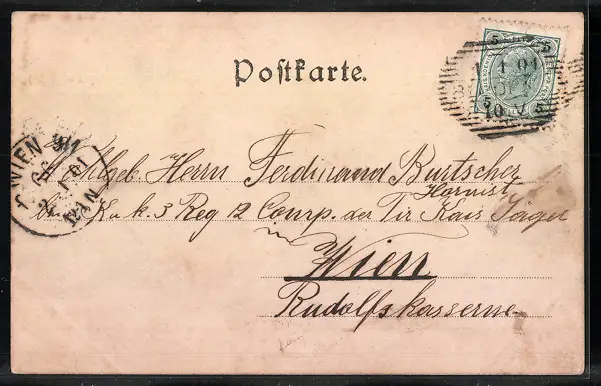 Postkarte.
5 5
5 5
WIEN 9/1
Wohlgeb. Herrn Ferdinand Burtscher
Hornist
K. u. k. 3 Reg 12 Comp. der Tir Kais Jäger
in
Wien
Rudolfskasserne